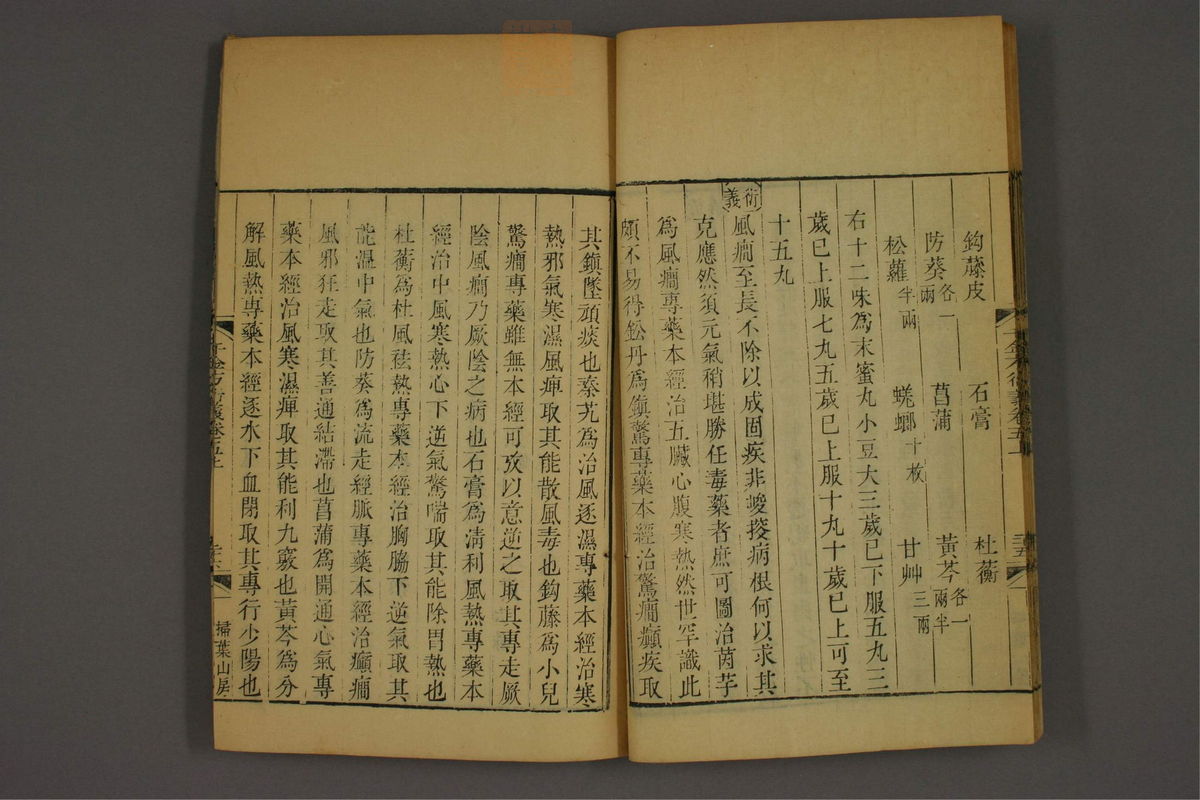 鈎藤皮 石膏 杜蘅
防葵各一兩 菖蒲 黃芩各一兩半
松蘿半兩 蜣螂十枚 甘艸三兩
右十二味爲末蜜丸小豆大三歲已下服五丸三
歲已上服七丸五歲已上服十丸十歲已上可至
十五丸
衍義
風癎至長不除以成固疾非峻搜病根何以求其
克應然須元氣稍堪勝任毒藥者庶可圖治茵芋
爲風癎專藥本經治五臟心腹寒熱然世罕識此
頗不易得鉛丹爲鎭驚專藥本經治驚癎癲疾取
其鎭墜頑痰也秦艽爲治風逐濕專藥本經治寒
熱邪氣寒濕風痺取其能散風毒也鈎藤爲小兒
驚癎專藥雖無本經可攷以意逆之取其專走厥
陰風癎乃厥陰之病也石膏爲淸利風熱專藥本
經治中風寒熱心下逆氣驚喘取其能除胃熱也
杜蘅爲杜風祛熱專藥本經治胸脇下逆氣取其
能溫中氣也防葵爲流走經脈專藥本經治癲癎
風邪狂走取其善通結滯也菖蒲爲開通心氣專
藥本經治風寒濕痺取其能利九竅也黃芩爲分
解風熱專藥本經逐水下血閉取其專行少陽也
千金方衍義卷五上
三六
掃葉山房